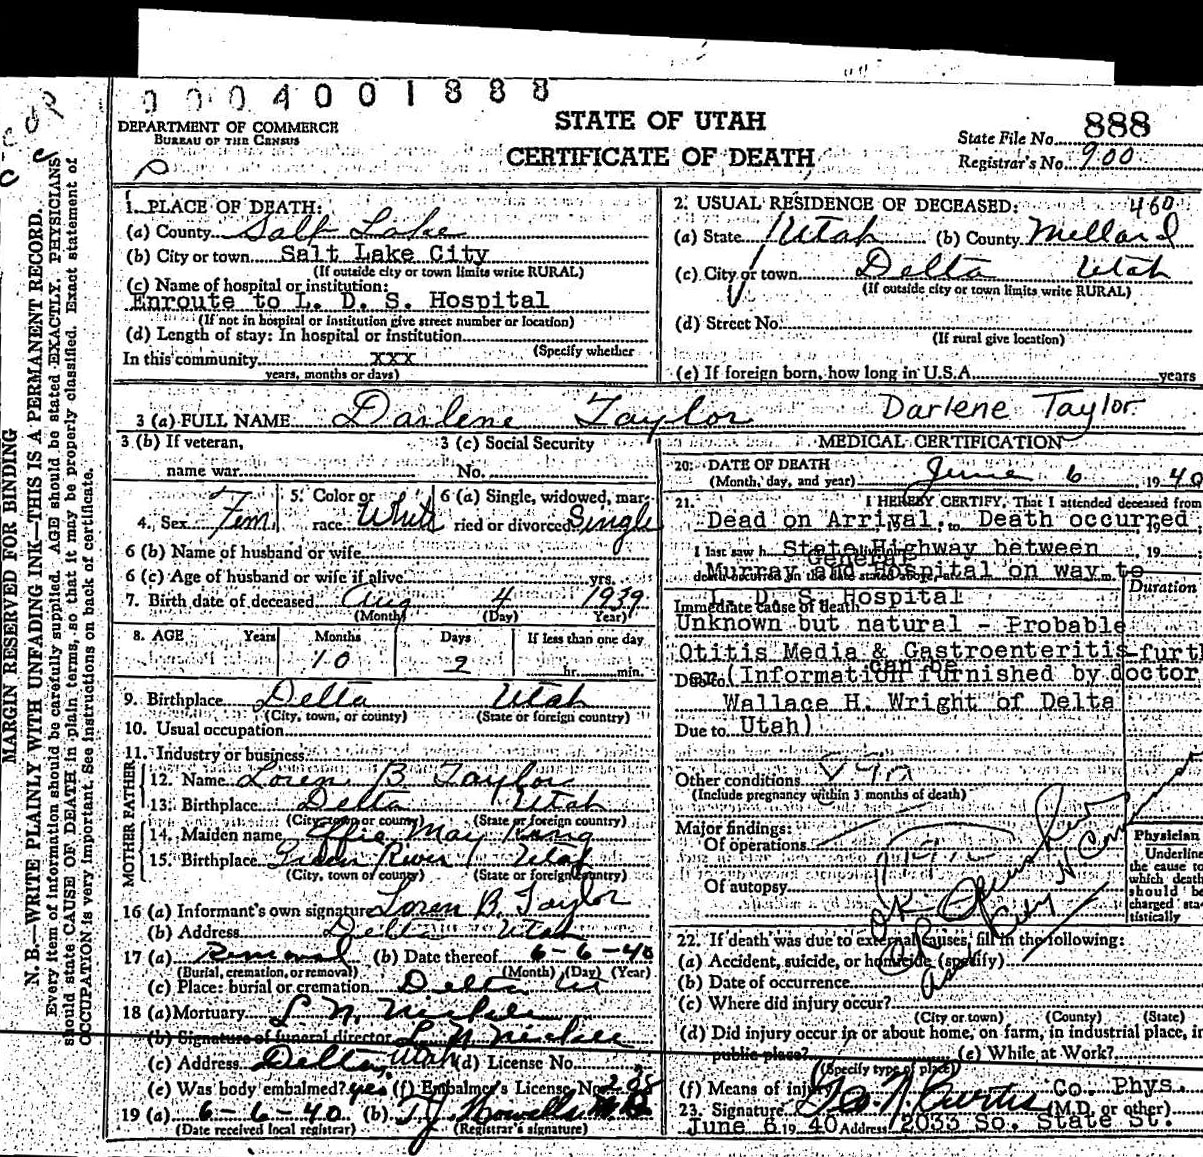 0004001888
DEPARTMENT OF COMMERCE
BUREAU OF THE CENSUS
STATE OF UTAH
CERTIFICATE OF DEATH
State File No. 888
Registrar's No. 900
MARGIN RESERVED FOR BINDING
N. B.—WRITE PLAINLY WITH UNFADING INK—THIS IS A PERMANENT RECORD.
Every item of information should be carefully supplied. AGE should be stated EXACTLY. PHYSICIANS
should state CAUSE OF DEATH in plain terms, so that it may be properly classified. Exact statement of
OCCUPATION is very important. See instructions on back of certificate.
1. PLACE OF DEATH:
(a) County Salt Lake
(b) City or town Salt Lake City
(If outside city or town limits write RURAL)
(c) Name of hospital or institution:
Enroute to L. D. S. Hospital
(If not in hospital or institution give street number or location)
(d) Length of stay: In hospital or institution
(Specify whether
In this community xxx
years, months or days)
2. USUAL RESIDENCE OF DECEASED: 460
(a) State Utah (b) County Millard
(c) City or town Delta Utah
(If outside city or town limits write RURAL)
(d) Street No.
(If rural give location)
(e) If foreign born, how long in U.S.A. years
3 (a) FULL NAME Darlene Taylor Darlene Taylor
3 (b) If veteran,
name war
3 (c) Social Security
No.
4. Sex Fem 5. Color or race White 6 (a) Single, widowed, married or divorced Single
6 (b) Name of husband or wife
6 (c) Age of husband or wife if alive yrs.
7. Birth date of deceased Aug 4 1939
(Month) (Day) (Year)
8. AGE Years Months Days If less than one day
10 2 hr. min.
9. Birthplace Delta Utah
(City, town, or county) (State or foreign country)
10. Usual occupation
11. Industry or business
FATHER
12. Name Loren B Taylor
13. Birthplace Delta Utah
(City, town or county) (State or foreign country)
MOTHER
14. Maiden name Effie May King
15. Birthplace Green River Utah
(City, town or county) (State or foreign country)
16 (a) Informant's own signature Loren B. Taylor
(b) Address Delta Utah
17 (a) Removal (b) Date thereof 6-6-40
(Burial, cremation, or removal) (Month) (Day) (Year)
(c) Place: burial or cremation Delta Ut
18 (a) Mortuary
(b) Signature of funeral director
(c) Address Delta, Utah (d) License No.
(e) Was body embalmed? yes (f) Embalmer's License No.
19 (a) 6-6-40 (b)
(Date received local registrar) (Registrar's signature)
MEDICAL CERTIFICATION
20. DATE OF DEATH June 6 1940
(Month, day, and year)
21. I HEREBY CERTIFY, That I attended deceased from
Dead on Arrival. to Death occurred
I last saw h State Highway between , 19
General
Murray & Hospital on way to
L. D. S. Hospital
Duration
Immediate cause of death
Unknown but natural - Probable
Otitis Media & Gastroenteritis furth
can be
Due to (Information furnished by doctor
Wallace H. Wright of Delta
Due to Utah)
Other conditions
(Include pregnancy within 3 months of death)
Major findings:
Of operations
Of autopsy
Physician
Underline
the cause to
which death
should be
charged sta-
tistically
22. If death was due to external causes, fill in the following:
(a) Accident, suicide, or homicide (specify)
(b) Date of occurrence
(c) Where did injury occur?
(City or town) (County) (State)
(d) Did injury occur in or about home, on farm, in industrial place, in
public place? (e) While at Work?
(Specify type of place)
(f) Means of injury Co. Phys.
23. Signature Curtis (M.D. or other)
June 6 19 40 Address 2033 So. State St.